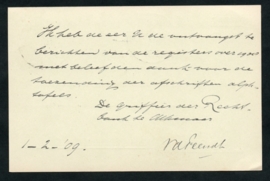 Ik heb de eer U de ontvangst te
berichten van de registers over 1900
met beleefden dank voor de
toezending der afschriften alph.
tafels
De griffier der Recht-
bank te Alkmaar
1-2-09.